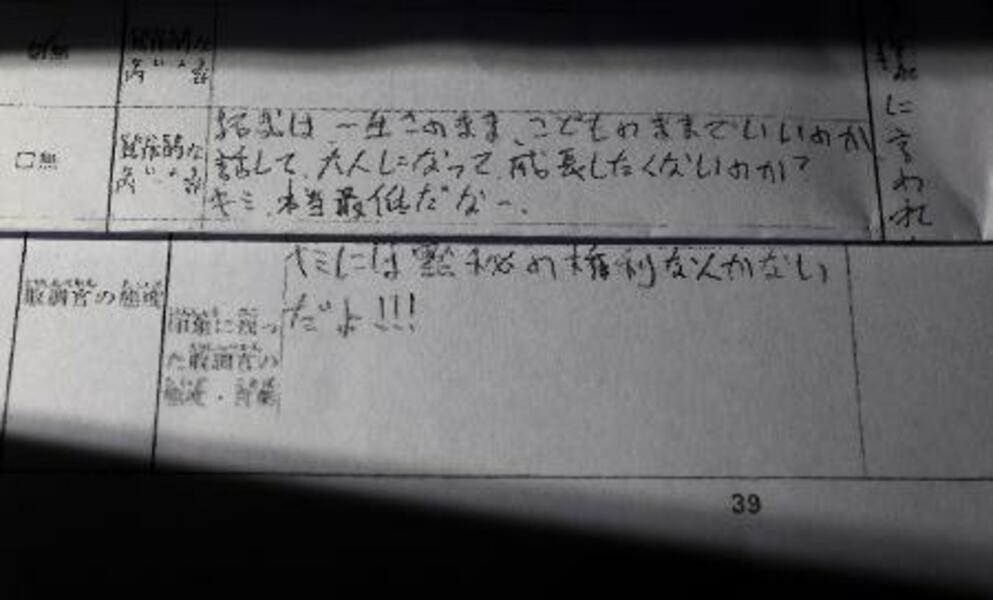 具体的な
言い分
に言われ
□無
具体的な
言い分
結局は一生このまま、こどものままでいいのか
話して、大人になって、成長したくないのか?
キミ、本当最低だなー。
キミには黙秘の権利なんかない
だよ!!!
取調官の態度
印象に残っ
た取調官の
態度・言葉
39